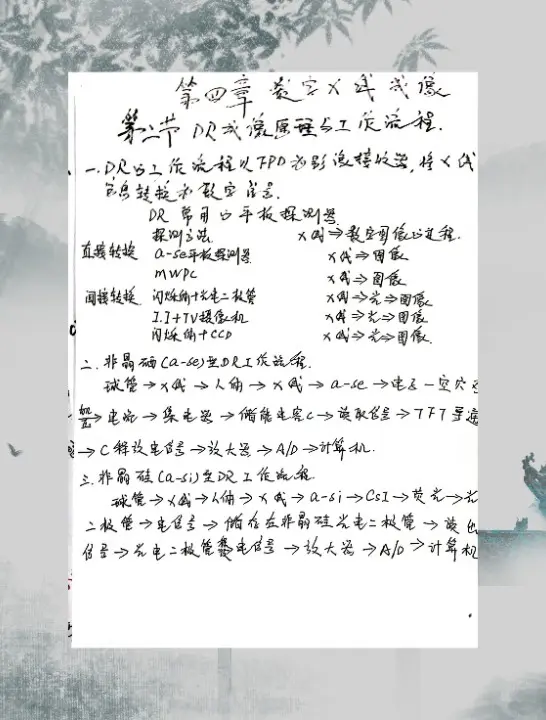 第四章 数字X线成像
第二节 DR成像原理与工作流程.
一.DR的工作流程以FPD为影像接收器,将X线
信息转换为数字信号.
DR常用的平板探测器
探测方法 X线⇒数字图像的过程.
直接转换 a-se平板探测器 X线⇒图像
MWPC X线⇒图像
间接转换 闪烁体+光电二极管 X线⇒光⇒图像
I.I+TV摄像机 X线⇒光⇒图像
闪烁体+CCD X线⇒光⇒图像.
二.非晶硒(a-se)型DR工作流程.
球管→X线→人体→X线→a-se→电子-空穴
加压→电流→集电器→储能电容C→读取信号→TFT导通
→C释放电信号→放大器→A/D→计算机.
三.非晶硅(a-si)型DR工作流程.
球管→X线→人体→X线→a-si→CsI→荧光→光
二极管→电信号→储存在非晶硅光电二极管→读出
信号→光电二极管 电信号→放大器→A/D→计算机